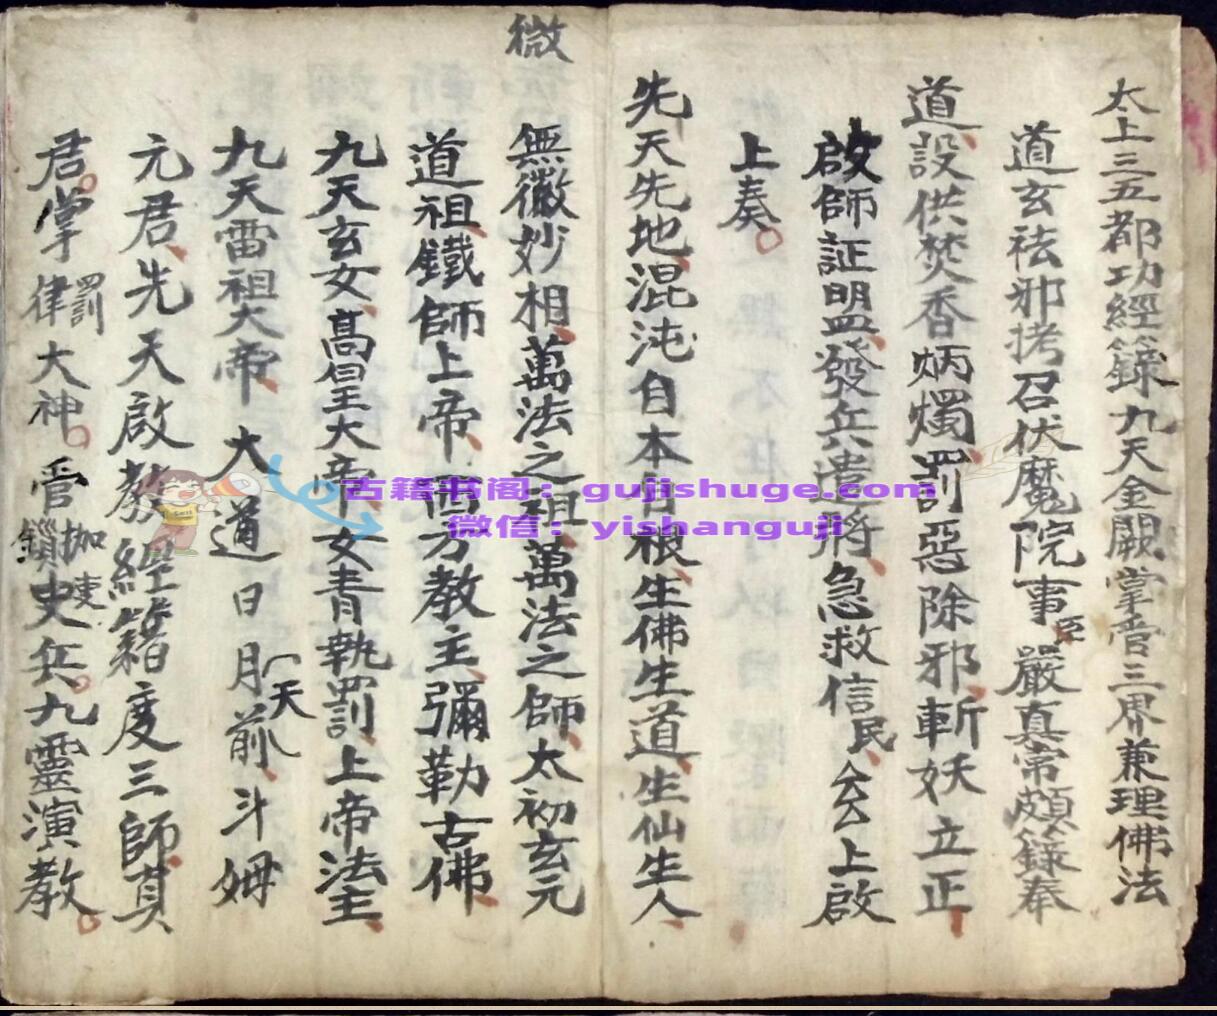 太上三五都功經籙九天金闕掌管三界兼理佛法
道玄祛邪拷召伏魔院事臣嚴真常頗籙奉
道設供焚香炳燭罰惡除邪斬妖立正
啟師証盟發兵遣將急救信民 上啟
上奏
先天先地混沌自本自根生佛生道生仙生人
微
無徽妙相萬法之祖萬法之師太初玄元
道祖鐵師上帝西方教主彌勒古佛
九天玄女高皇大帝女青執罰上帝法主
九天雷祖大帝大道日月前天斗姆
元君先天啟教經籍度三師真
君掌罰律大神管枷鎖吏兵九靈演教
古籍书阁：gujishuge.com
微信：yishanguji